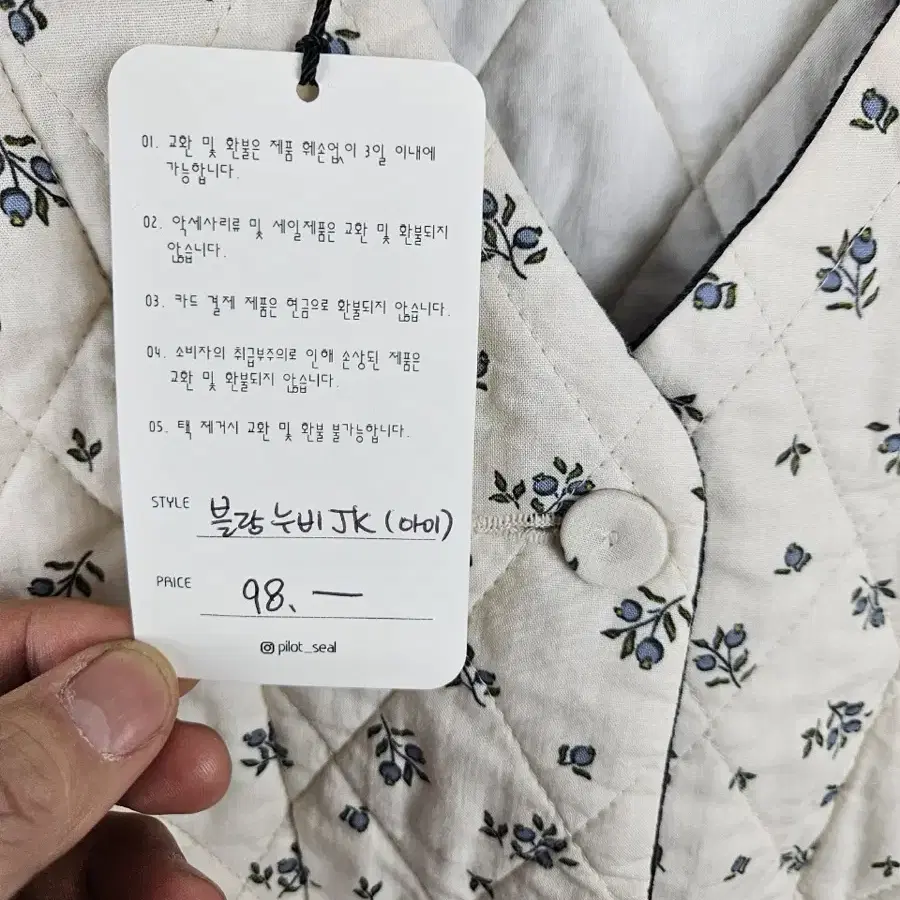 01. 교환 및 환불은 제품 훼손없이 3일 이내에
가능합니다.
02. 악세사리류 및 세일제품은 교환 및 환불되지
않습니다.
03. 카드 결제 제품은 현금으로 환불되지 않습니다.
04. 소비자의 취급부주의로 인해 손상된 제품은
교환 및 환불되지 않습니다.
05. 택 제거시 교환 및 환불 불가능합니다.
STYLE 블랑누비JK (아이)
PRICE 98. —
pilot_seal